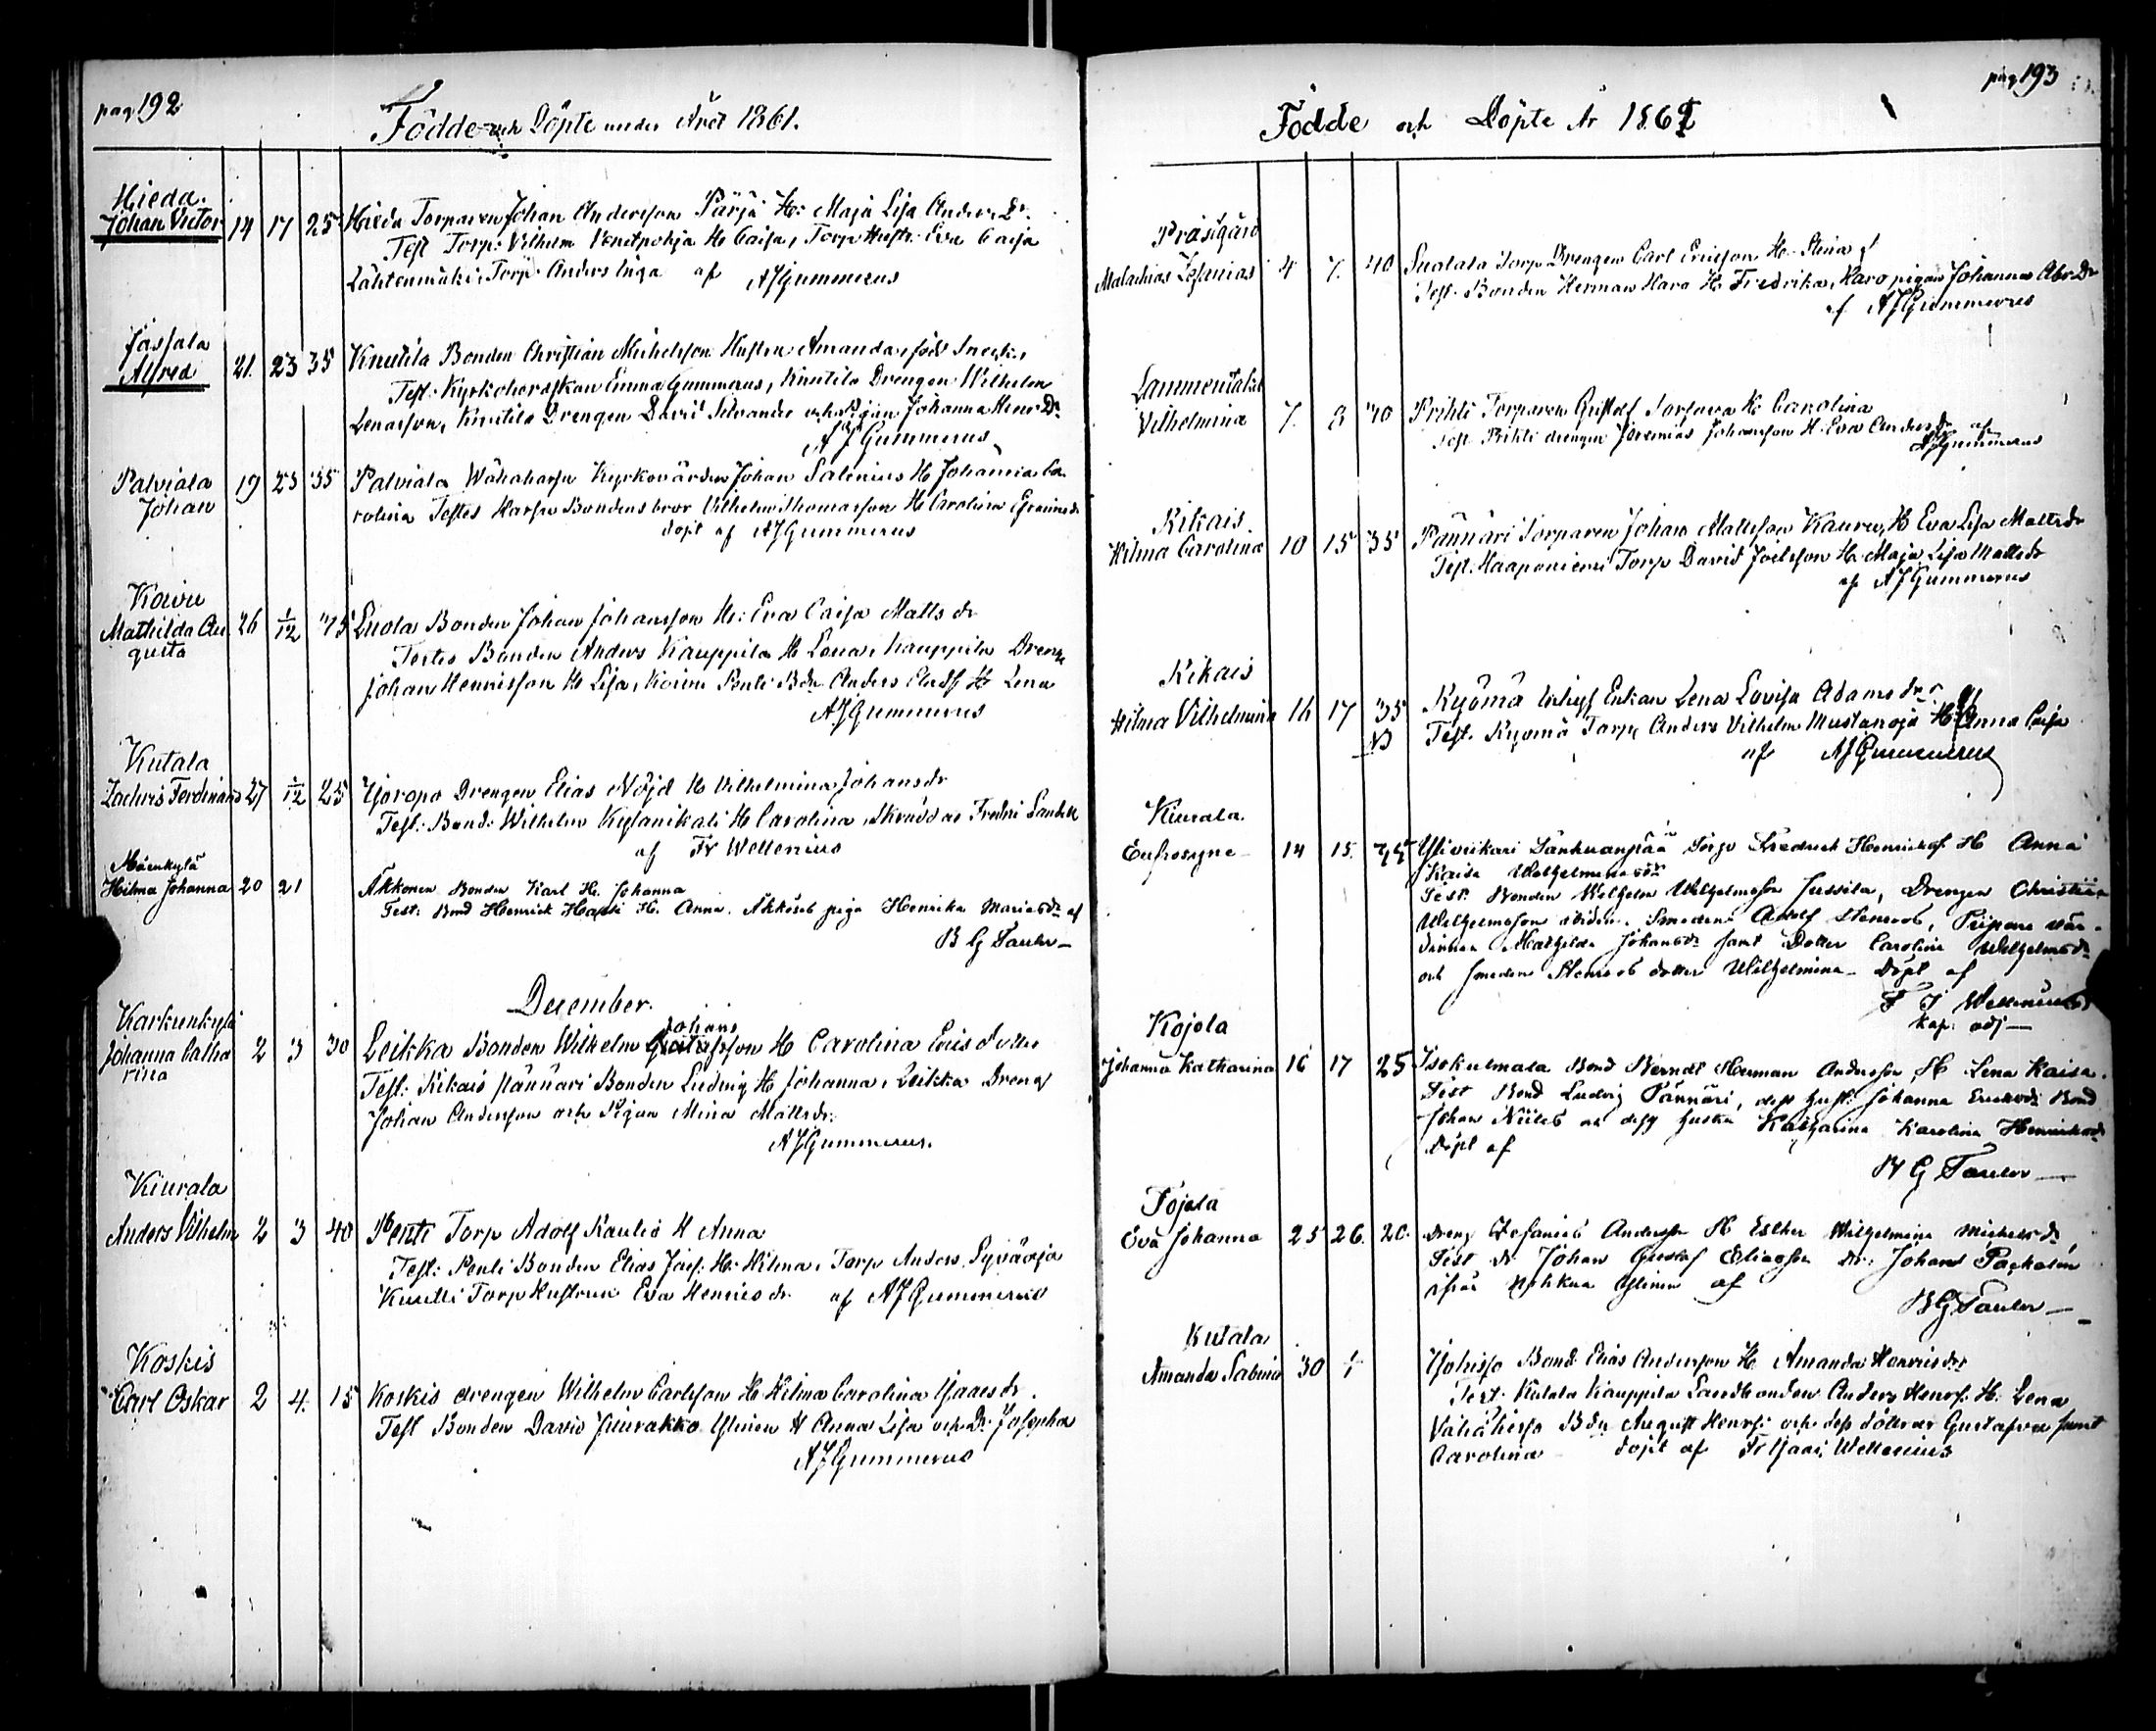 pag 192
Födde och Döpte under Året 1861.
Hieda.
Johan Victor 14 17 25 Hieda Torparen Johan Andersson Pärjä H: Maja Lisa Anders Dr.
Test Torp: Vilhelm H Caisa, Torp Hustr: Eva Caisa
Lähtenmäki, Torp. Anders Inga af AJGummerus
Jässala
Alfred 21. 23 35 Knutila Bonden Christian Michelsson Hustru Amanda, född
Test: Kyrkoherdskan Emma Gummerus, Knutila Drengen Wilhelm
Knutila Drengen David Silvander och Pigan Johanna Henr Dr
A J Gummerus
Palviala
Johan 19 23 35 Palviala Wähaharju Kyrkovärden Johan Salenius H Johanna Ca-
rolina Testes Harju Bondens bror Vilhelm Thomasson H Carolina
döpt af AJGummerus
Koivu
Mathilda Au 26 1/12 35 Luola Bonden Johan Johansson H: Eva Caisa Matts dr
gusta
Testes Bonden Anders Kauppila H Lena, Kauppila Dreng
Johan Henricsson H Lisa, Koivu Penti Bdn Anders H Lena
AJGummerus
Kutala
Zachris Ferdinand 27 1/12 25 Yjoropo Drengen Elias Nöjd H Vilhelmina Johansdr
Test: Bond: Wilhelm H Carolina, Skräddar Fredri
af Fr Wellenius
Mäenkylä
Hilma Johanna 20 21 Äkkönen Bonden Karl H. Johanna
Test: Bond Henrick H. Anna. piga Henrika Mariasdr af
B G Tauler
December.
Karkunkylä
Johanna Catha 2 3 30 Leikka Bonden Wilhelm Johansson H Carolina dotter
rina
Test: Kikais Pännäri Bonden Ludvig H Johanna, Leikka Dreng
Johan Andersson och Pigan Mina Mattsdr.
AJGummerus.
Kiurala
Anders Vilhelm 2 3 40 Penti Torp Adolf H Anna
Test: Penti Bonden Elias H: Hilma, Torp Anders Syväoja
Torp Hustrun Eva Henricsdr af AJGummerus
Koskis
Carl Oskar 2 4. 15 Koskis drengen Wilhelm Carlsson H Hilma Carolina Isaacs dr.
Test Bonden David H Anna Lisa och Dr: Josepha
AJGummerus
pag 193
Födde och Döpte År 1862
Prästgård
Malachias Zephanias 4 7. 40 Suolala Torp Drengen Carl Ericsson H. Stina
Test. Bonden Herman Haro H. Fredrika, Haro pigan Johanna Abr. Dr
af AJGummerus
Lammentaka
Vilhelmina 7. 8 40 Prihti Torparen Gustaf H. Carolina
Test Prihti drengen Jeremias Johansson H. Eva Andersdr af
AJGummerus
Kikais.
Hilma Carolina 10 15 35 Pännäri Torparen Johan Mattsson Kauru, H Eva Lisa Mattsdr
Test. Haaponiemi Torp David Joelsson H. Maja Lisa Mattsdr
af AJGummerus
Kikais
Hilma Vilhelmina 16 17 35 Kyömä Enkan Lena Lovisa Adams dr
Test. Kyömä Torp Anders Vilhelm Mustanoja H: Anna Caisa
af AJGummerus
Kiurala.
Eufrosyne 14 15. 35 Yliviikari Torp Fredrick Henricksf H Anna
Kaisa Wilhelmsdr
Test: Bonden Wilhelm Wilhelmsson Jussila, Drengen Christian
Wilhelmsson Smeden Adolf Stenroos, vär-
dinnan Mathilda Johansdr samt Dotter Carolina Wilhelmsdr
och smeden Stenroos dotter Wilhelmina – Döpt af
F I Wellenius
kap: adj
Kojola
Johanna Katharina 16 17 25 Isokulmala Bond Berndt Herman Andersson H Lena Kaisa.
Test Bond Ludvig Pännäri, dess hust: Johanna Bond
Johan dess hustru Katharina Karolina Henricksdr
Döpt af
B G Tauler
Tojola
Eva Johanna 25 26. 20. Dreng Stefanius Andersson H Esther Wilhelmina Michelsdr
Test Dr Johan Gustaf Eliasson Dr: Johan
af
B G Tauler
Kutala
Amanda Sabina 30 Bond: Elias Andersson H. Amanda Henricsdr
Test: Kutala Kauppila Landbonden Anders Henrs: H. Lena
Bdn August Henrs: och dess döttrar Gustafva samt
Carolina döpt af Fr Isac: Wellenius